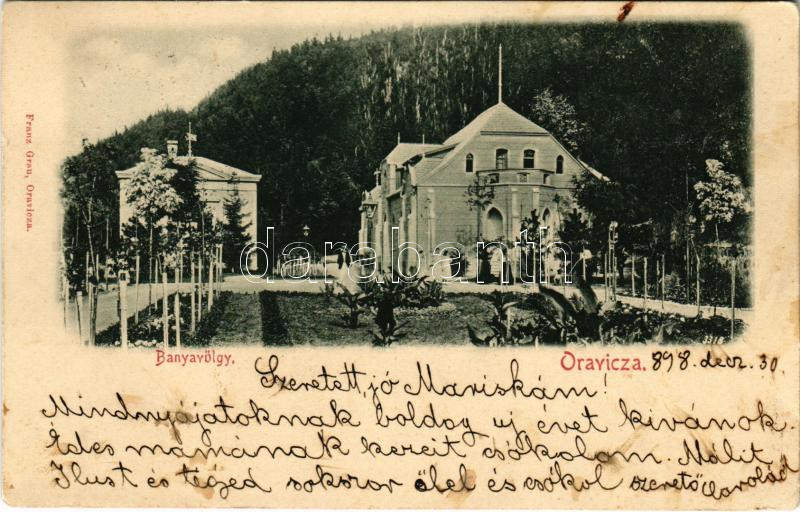 Franz Grau, Oravicza.
darabanth
3318
Banyavölgy.
Oravicza. 898. decz. 30
Szeretett jó Mariskám!
Mindnyájatoknak boldog uj évet kivánok.
Édes mamának kezeit csókolom. Málit
Ilust és téged sokszor ölel és csókol szerető